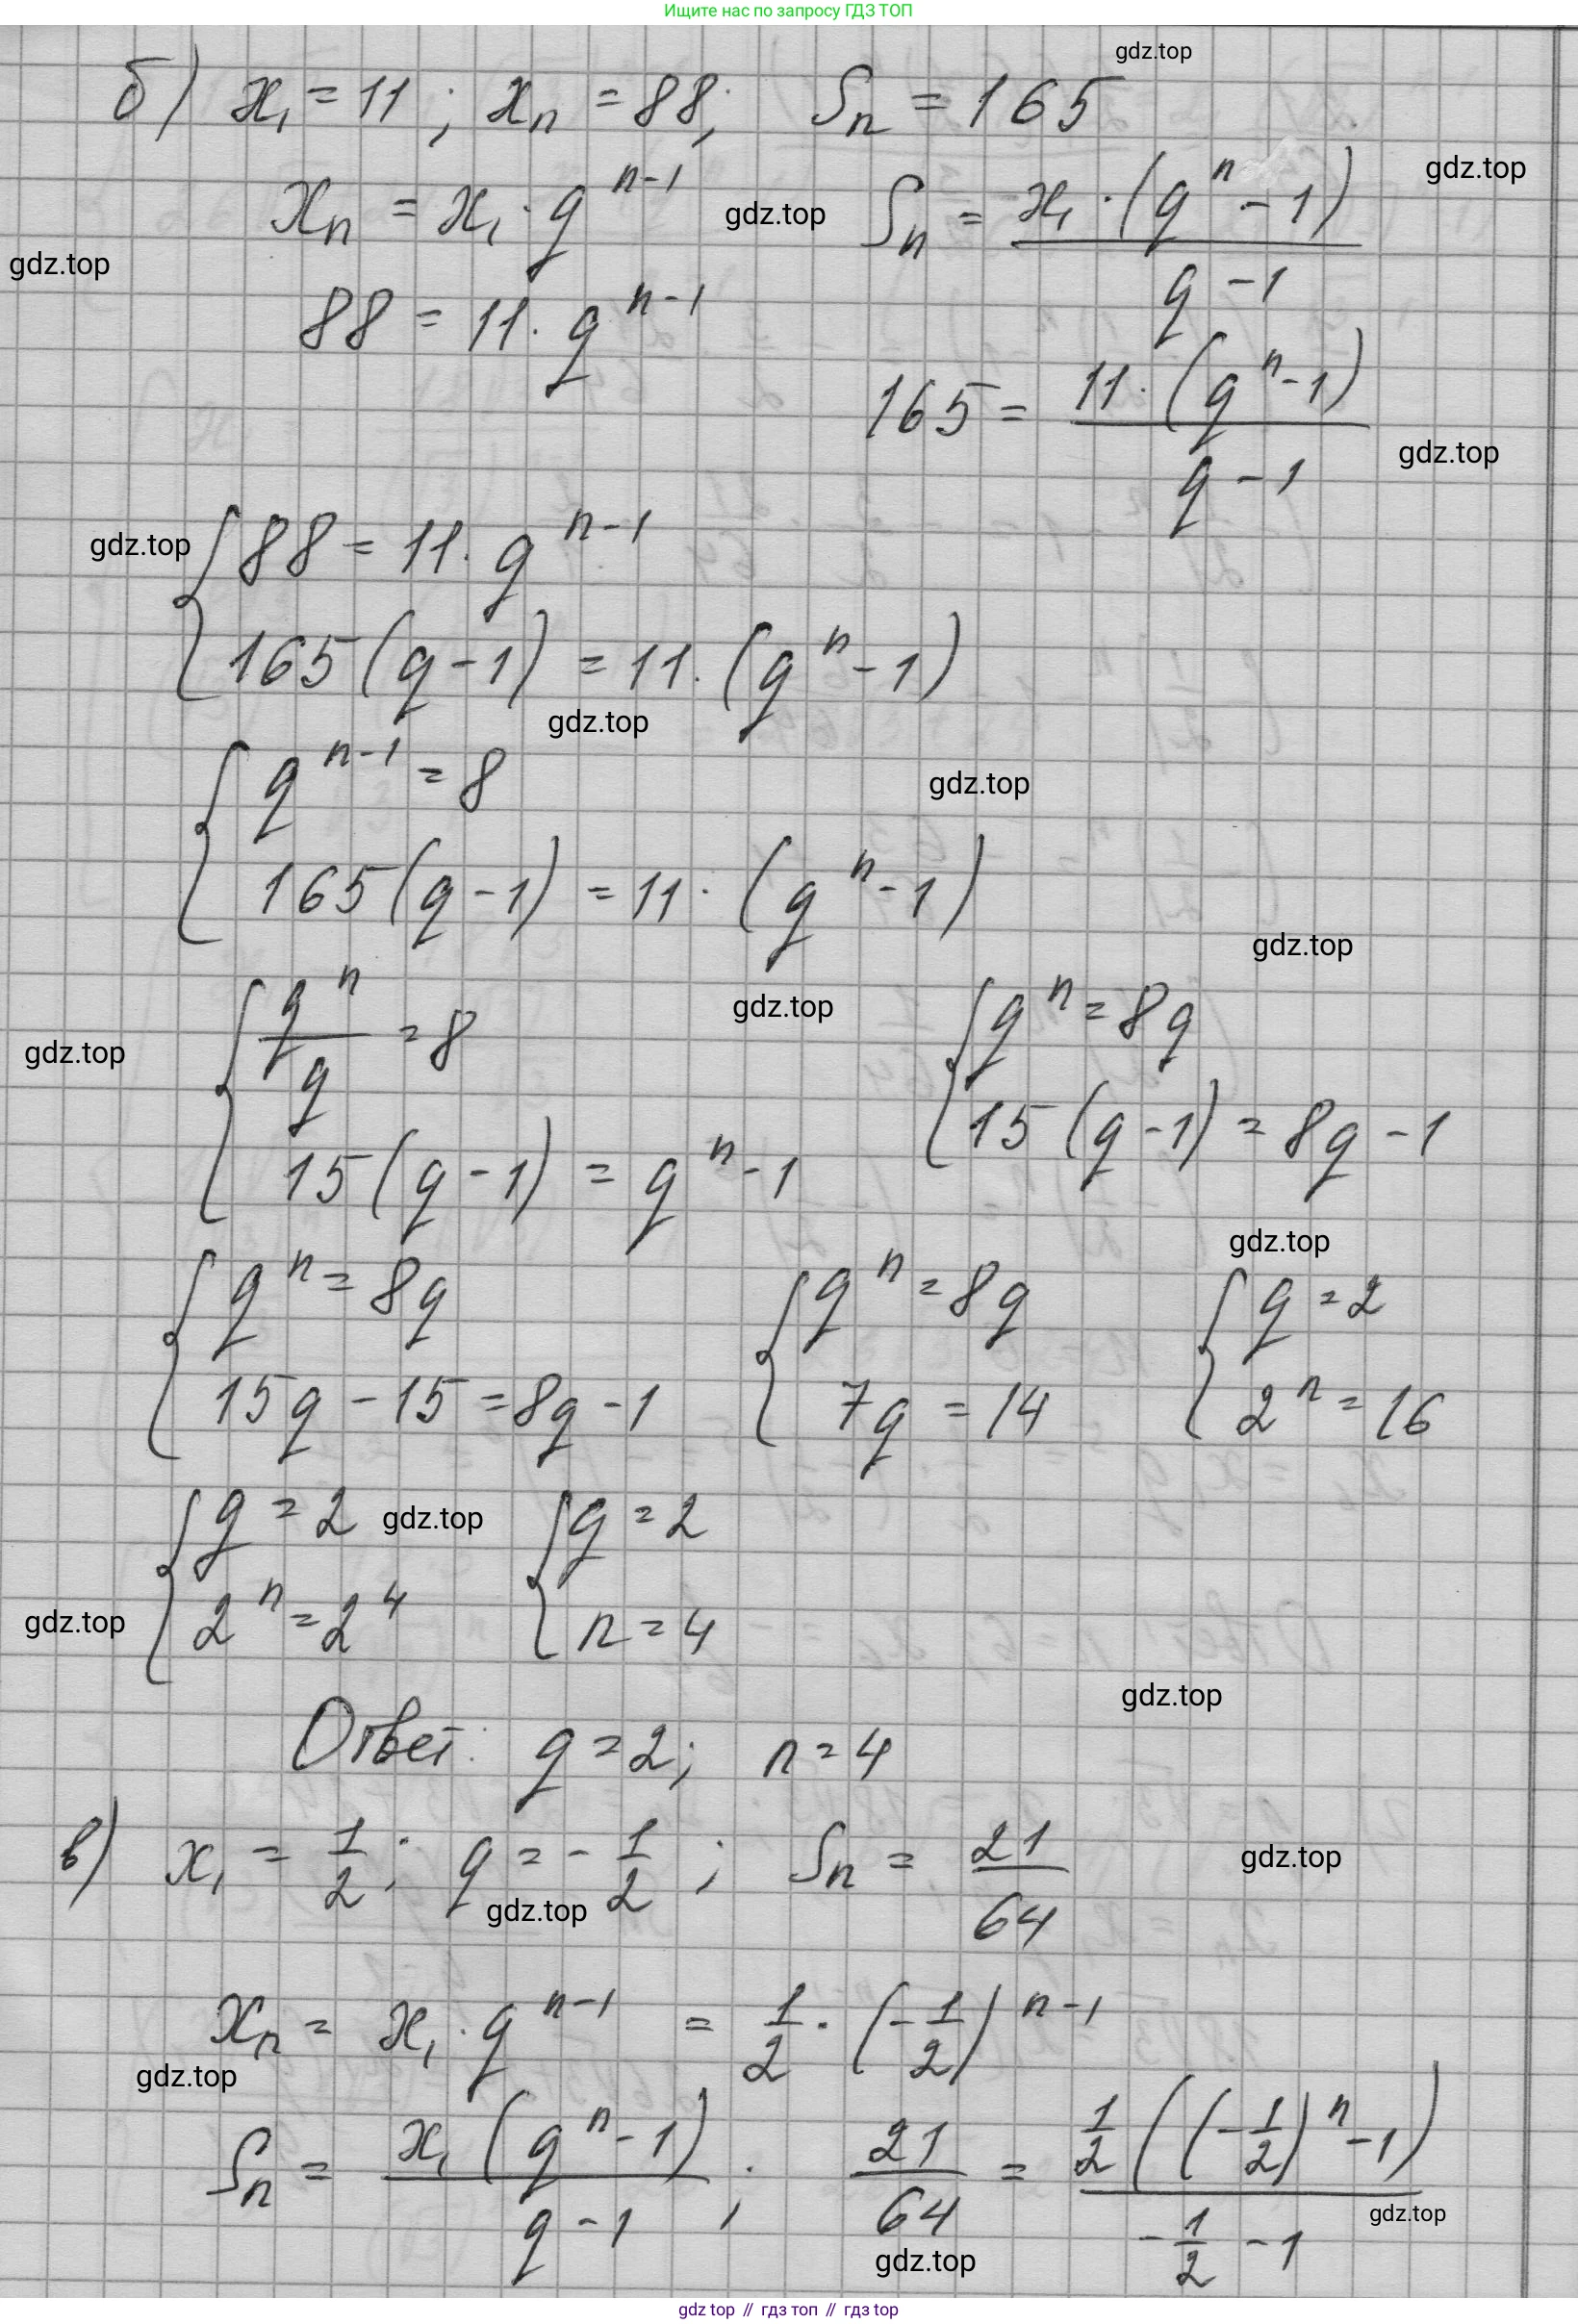 Ищите нас по запросу ГДЗ ТОП
gdz.top
б) x₁ = 11 ; xₙ = 88; Sₙ = 165
xₙ = x₁ · q^(n-1) gdz.top Sₙ = (x₁ · (q^n - 1))/(q - 1) gdz.top
gdz.top
88 = 11 · q^(n-1)
165 = (11 · (q^n - 1))/(q - 1) gdz.top
gdz.top { 88 = 11 · q^(n-1)
165(q - 1) = 11 · (q^n - 1)
gdz.top
{ q^(n-1) = 8 gdz.top
165(q - 1) = 11 · (q^n - 1)
gdz.top
gdz.top { q^n/q = 8 gdz.top { q^n = 8q
15(q - 1) = q^n - 1 15(q - 1) = 8q - 1
gdz.top
{ q^n = 8q { q^n = 8q { q = 2
15q - 15 = 8q - 1 7q = 14 2^n = 16
{ q = 2 gdz.top { q = 2
gdz.top 2^n = 2^4 n = 4
gdz.top
Ответ: q = 2; n = 4
в) x₁ = 1/2 ; q = - 1/2 ; Sₙ = 21/64 gdz.top
gdz.top
xₙ = x₁ · q^(n-1) = 1/2 · (-1/2)^(n-1)
gdz.top
Sₙ = (x₁(q^n - 1))/(q - 1) ; 21/64 = (1/2((-1/2)^n - 1))/(-1/2 - 1)
gdz.top
gdz.top
gdz top // гдз топ // гдз top